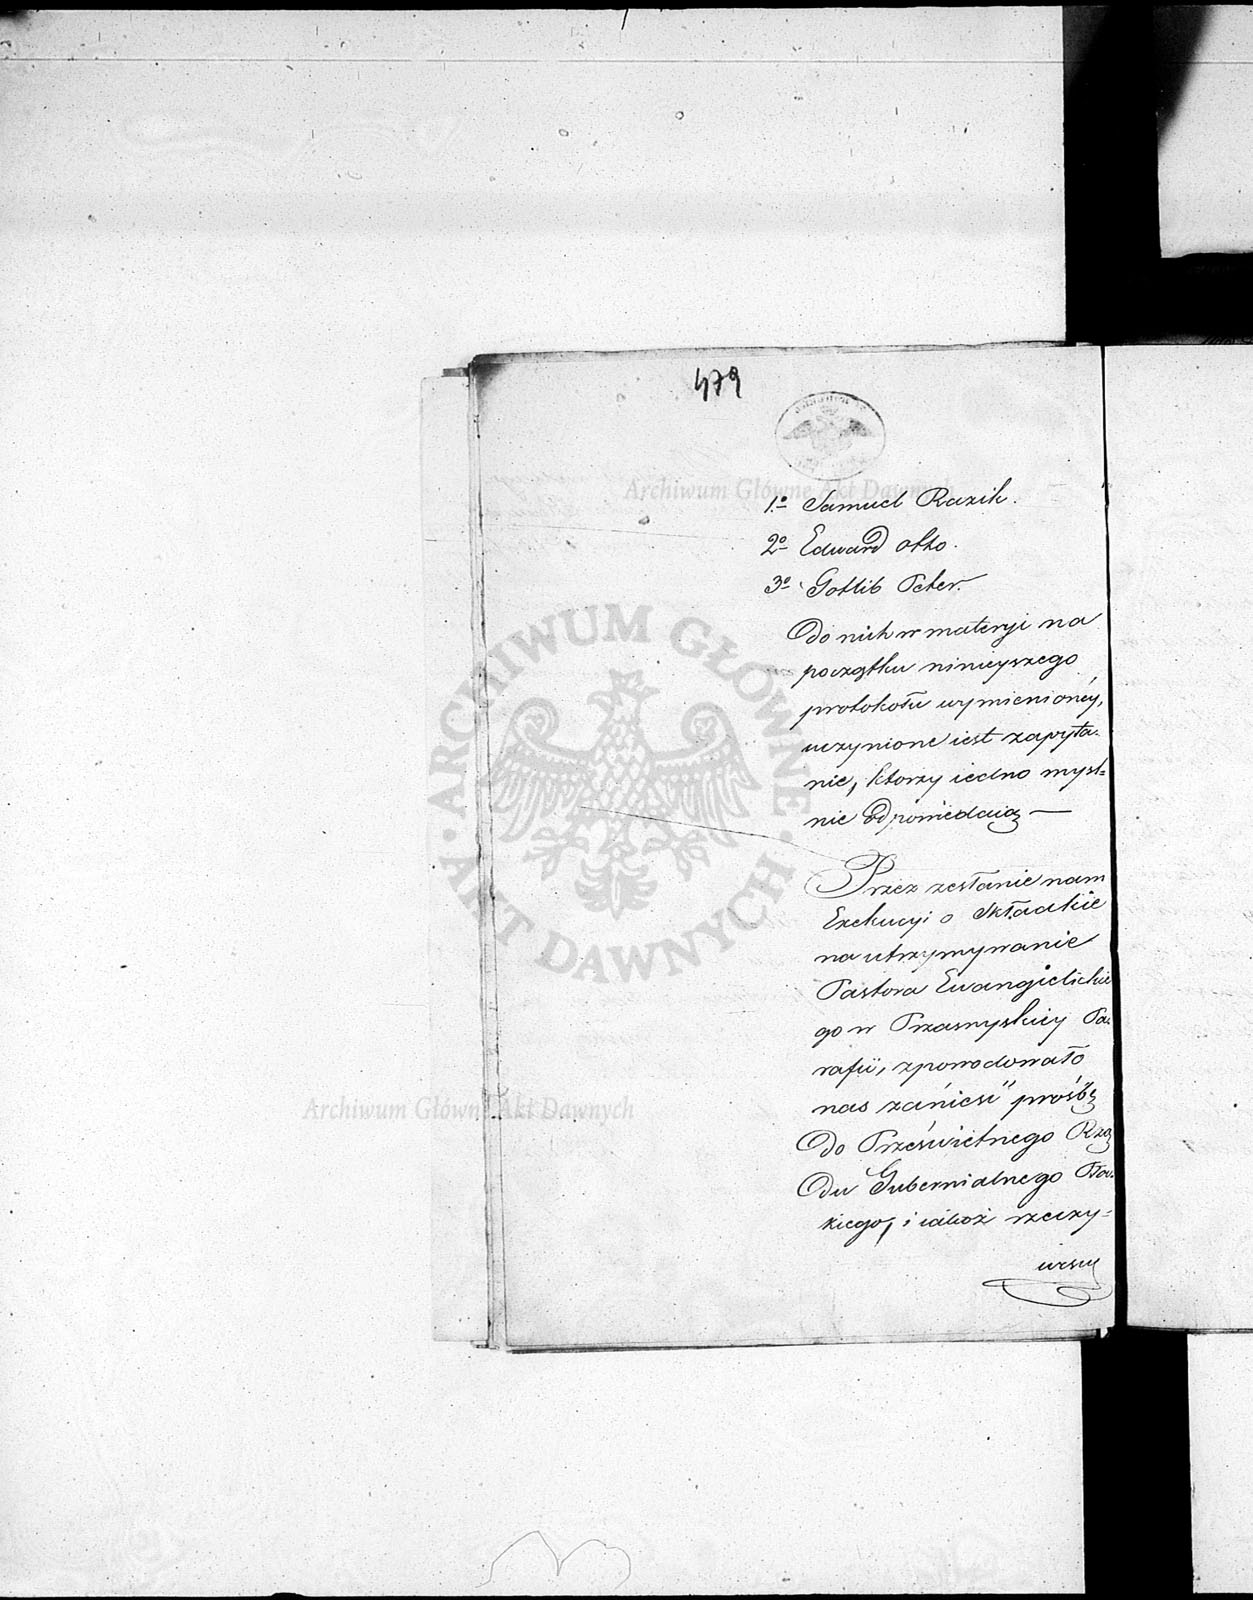 479
Archiwum Główne Akt Dawnych
1o Samuel Razik.
2o Edward Otto.
3o Gotlib Peter.
Do nich w materyi na
początku ninieyszego
protokołu wymienioney,
uczynione iest zapyta-
nie, ktorzy iedno myśl=
nie odpowiedaią —
Przez zesłanie nam
Exekucyi o składkie
na utrzymywanie
Pastora Ewangielickie
go w Przasnyskiey Pa-
rafii, zpowodowało
nas zanieść prośbę
do Prześwietnego Rzą
du Gubernialnego Pło-
kiego, i iakoż rzeczy-
wiście
ARCHIWUM GŁÓWNE
AKT DAWNYCH
Archiwum Główne Akt Dawnych